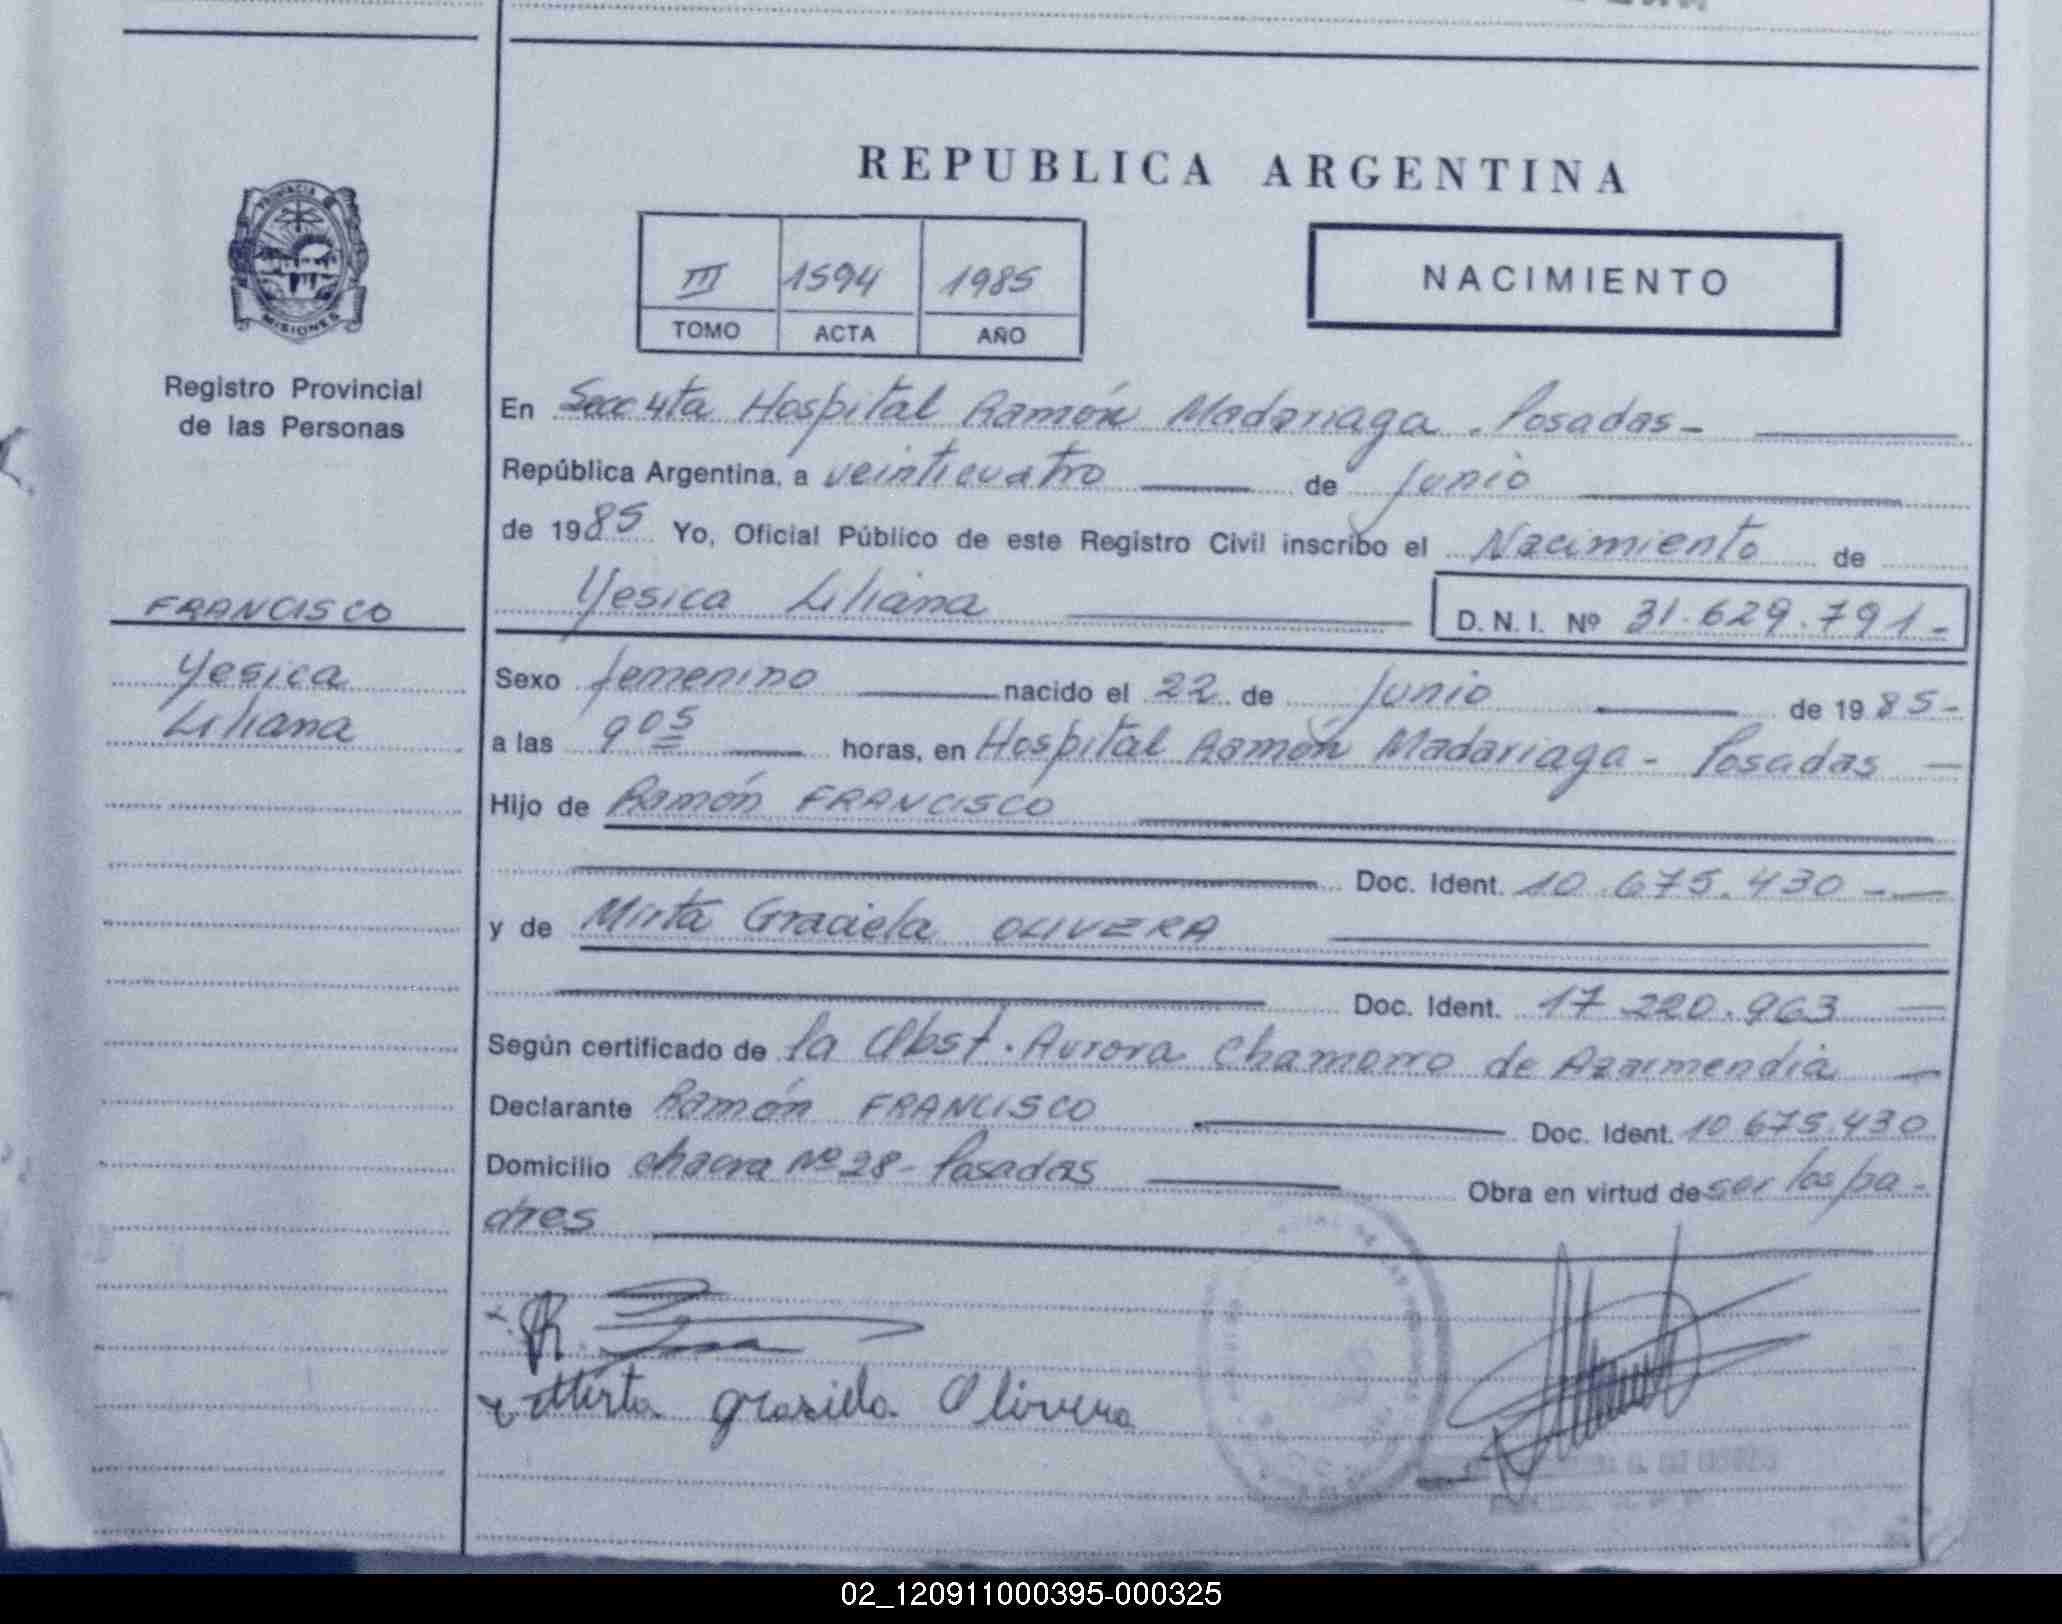 PROVINCIA DE
MISIONES
Registro Provincial
de las Personas
FRANCISCO
Yesica
Liliana
REPUBLICA ARGENTINA
III 1594 1985
TOMO ACTA AÑO
NACIMIENTO
En Secc 4ta Hospital Ramón Madariaga. Posadas-
República Argentina, a veinticuatro de junio
de 1985 Yo, Oficial Público de este Registro Civil inscribo el Nacimiento de
Yesica Liliana D.N.I. Nº 31.629.791-
Sexo femenino nacido el 22 de junio de 1985-
a las 9 05 horas, en Hospital Ramón Madariaga - Posadas
Hijo de Ramón FRANCISCO
Doc. Ident. 10.675.430
y de Mirta Graciela OLIVERA
Doc. Ident. 17 220.963
Según certificado de la Obst. Aurora Chamorro de Azarmendia
Declarante Ramón FRANCISCO Doc. Ident. 10 675.430
Domicilio chacra Nº 28- Posadas Obra en virtud de ser los pa-
dres
Mirta grasiela Olivera
02_120911000395-000325